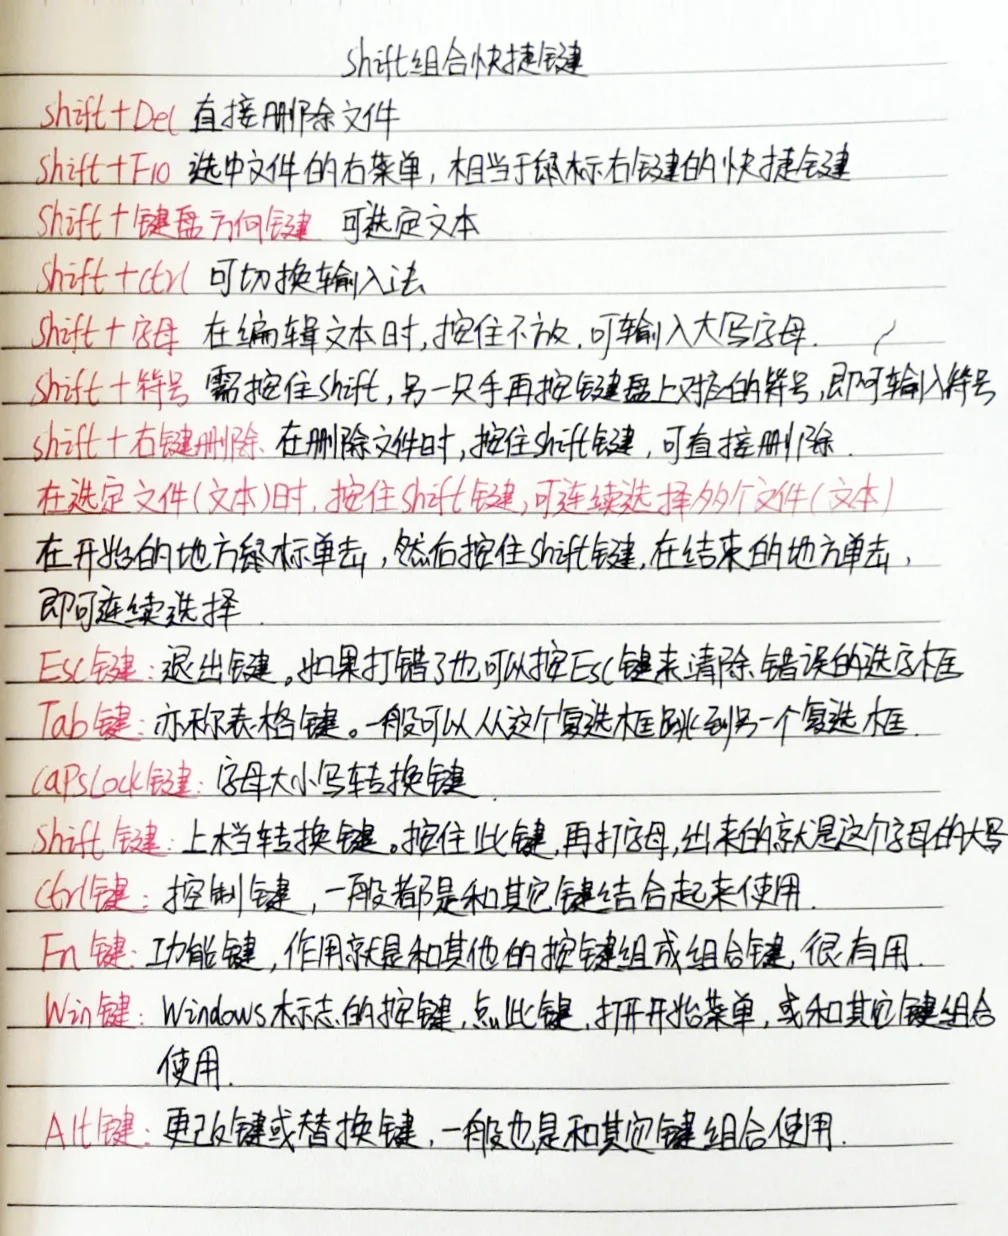 Shift组合快捷键
Shift+Del 直接删除文件
Shift+F10 选中文件的右菜单，相当于鼠标右键的快捷键
Shift+键盘方向键 可选定文本
Shift+Ctrl 可切换输入法
Shift+字母 在编辑文本时，按住不放，可输入大写字母.
Shift+符号 需按住Shift，另一只手再按键盘上对应的符号，即可输入符号
shift+右键删除. 在删除文件时，按住Shift键，可直接删除.
在选定文件(文本)时，按住Shift键，可连续选择多个文件(文本)
在开始的地方鼠标单击，然后按住Shift键，在结束的地方单击，
即可连续选择.
Esc键：退出键。如果打错了也可以按Esc键来清除错误的选字框
Tab键：亦称表格键。一般可以从这个复选框跳到另一个复选框.
CapsLock键：字母大小写转换键.
Shift键：上档转换键。按住此键，再打字母，出来的就是这个字母的大写
Ctrl键：控制键，一般都是和其它键结合起来使用.
Fn键：功能键，作用就是和其他的按键组成组合键，很有用.
Win键：Windows标志的按键，点此键，打开开始菜单，或和其它键组合
使用.
Alt键：更改键或替换键，一般也是和其它键组合使用.